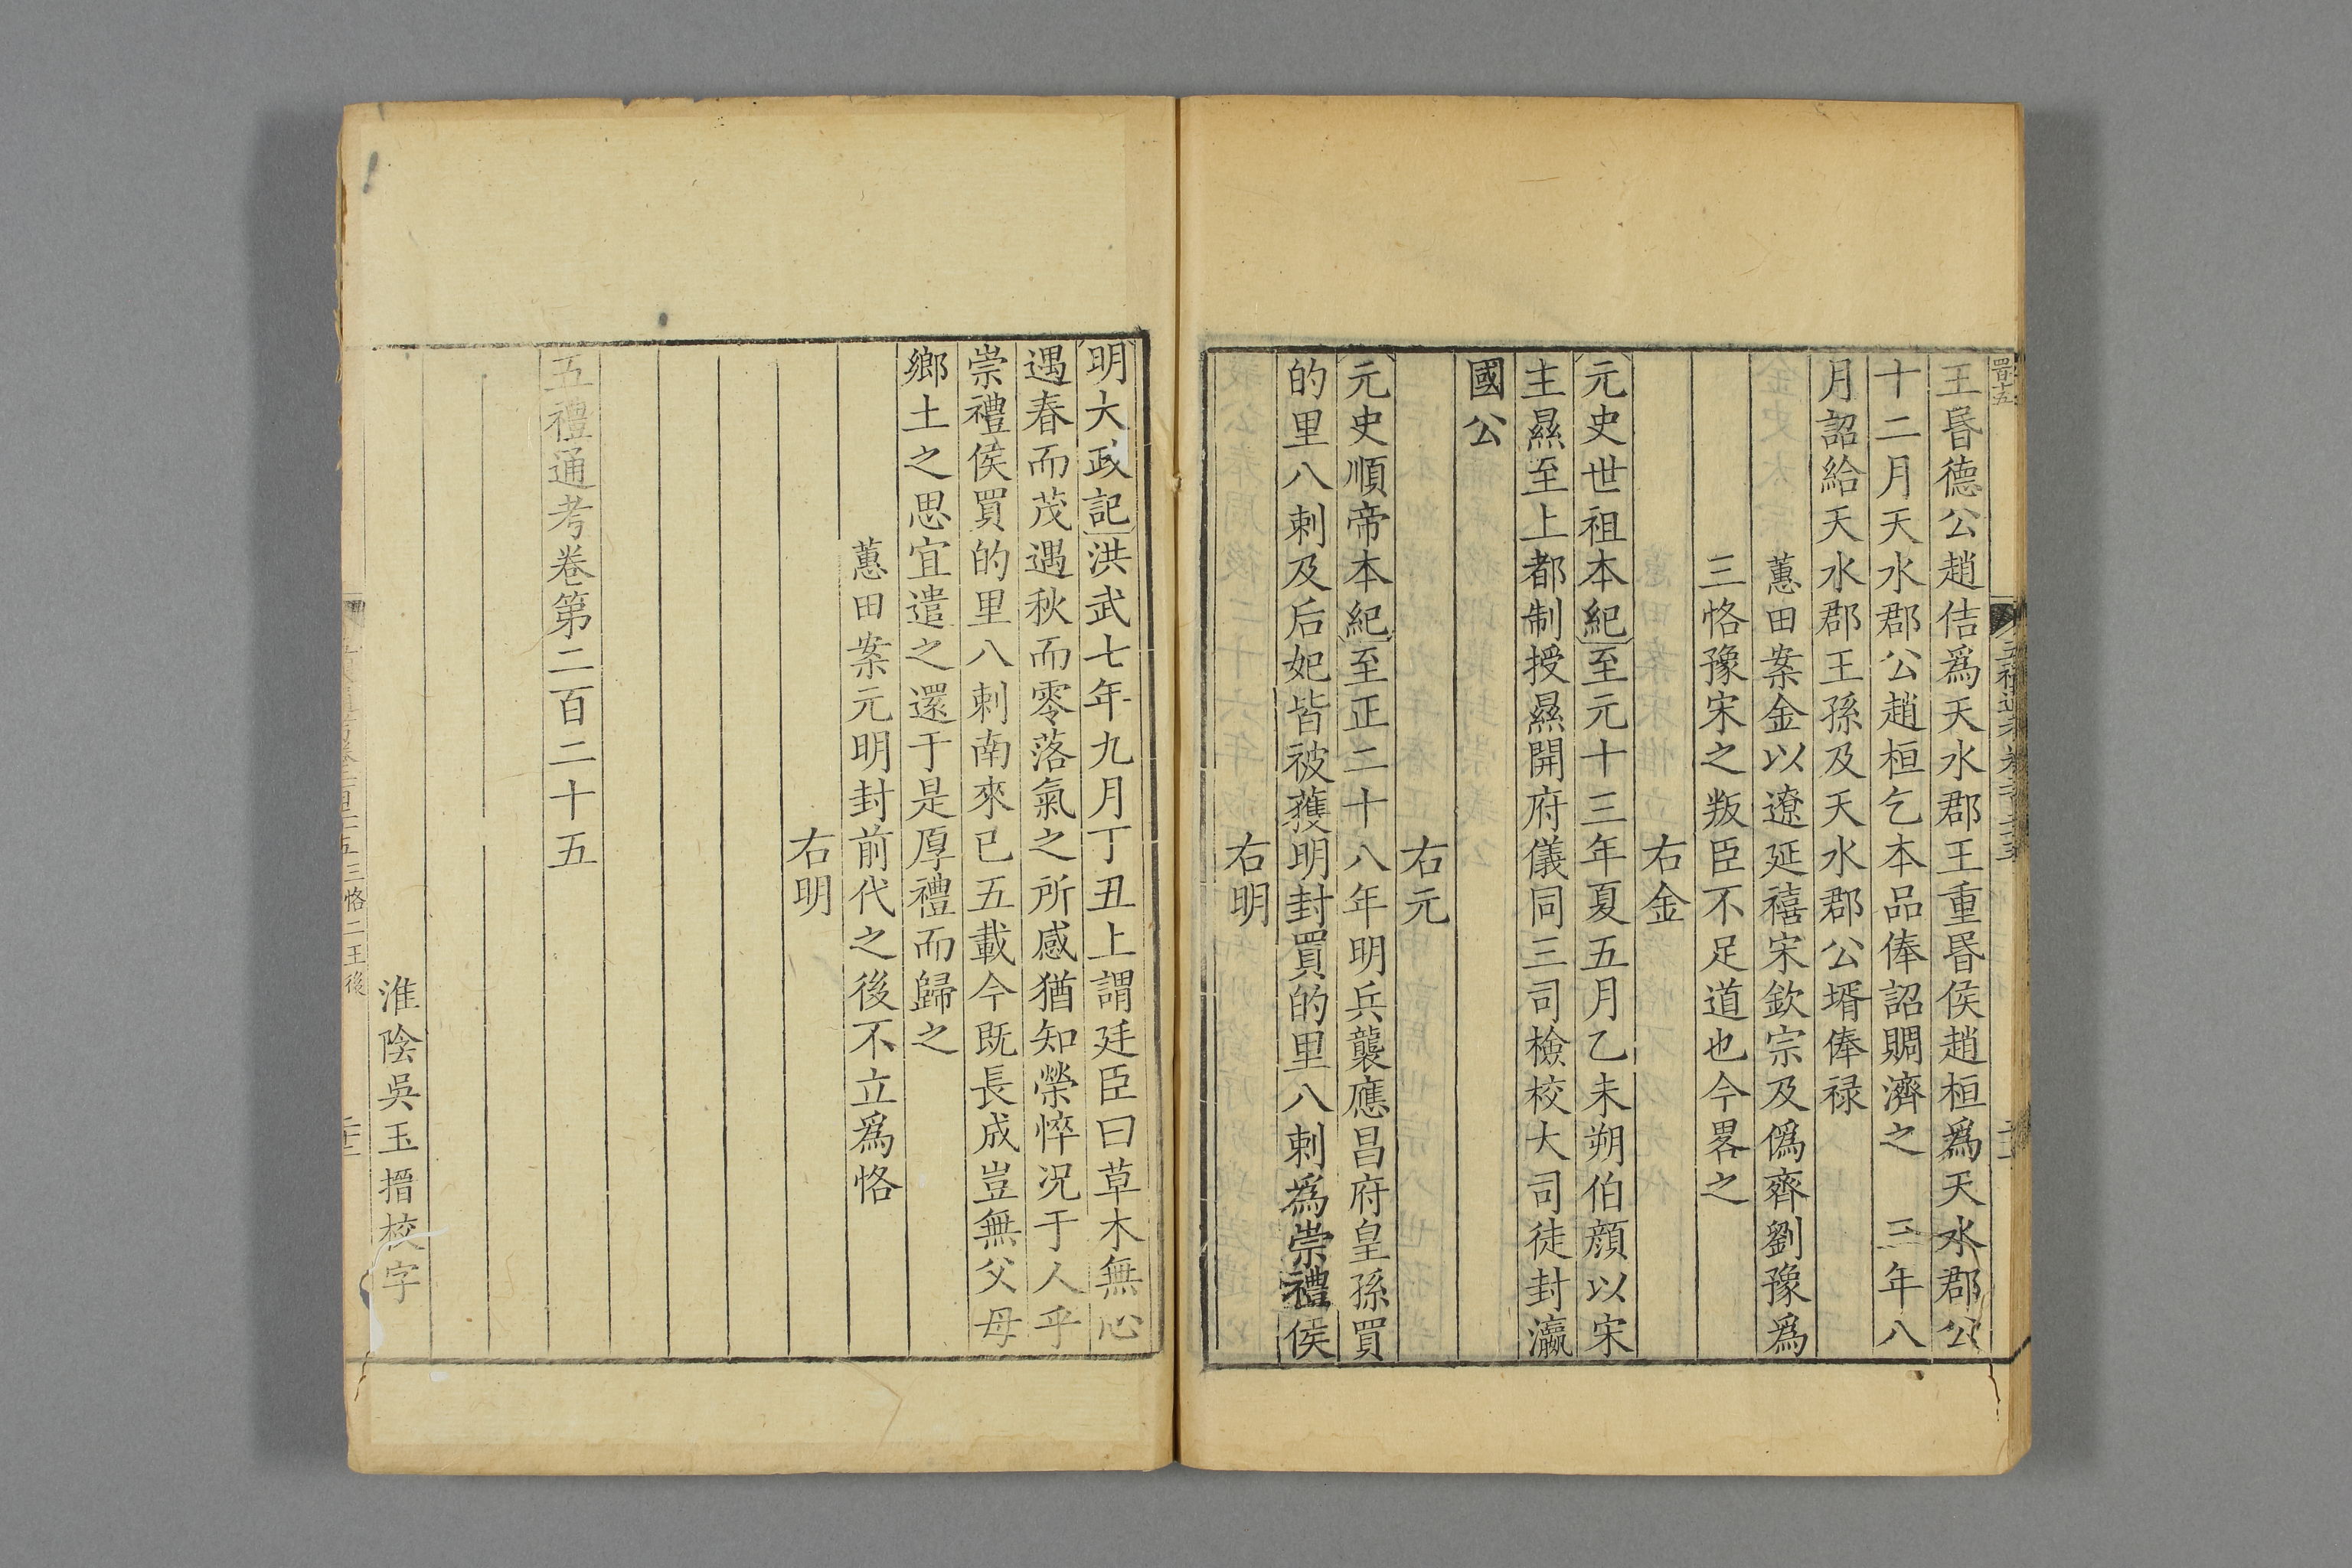 王昬德公趙佶爲天水郡王重昬侯趙桓爲天水郡公
十二月天水郡公趙桓乞本品俸詔賙濟之　三年八
月詔給天水郡王孫及天水郡公壻俸禄
蕙田案金以遼延禧宋欽宗及僞齊劉豫爲
三恪豫宋之叛臣不足道也今畧之
右金
元史世祖本紀至元十三年夏五月乙未朔伯顏以宋
主㬎至上都制授㬎開府儀同三司檢校大司徒封瀛
國公
右元
元史順帝本紀至正二十八年明兵襲應昌府皇孫買
的里八剌及后妃皆被獲明封買的里八剌爲崇禮侯
右明
明大政記洪武七年九月丁丑上謂廷臣曰草木無心
遇春而茂遇秋而零落氣之所感猶知榮悴况于人乎
崇禮侯買的里八剌南來已五載今既長成豈無父母
鄉土之思宜遣之還于是厚禮而歸之
蕙田案元明封前代之後不立爲恪
右明
五禮通考卷第二百二十五
淮陰吳玉搢校字
三恪二王後